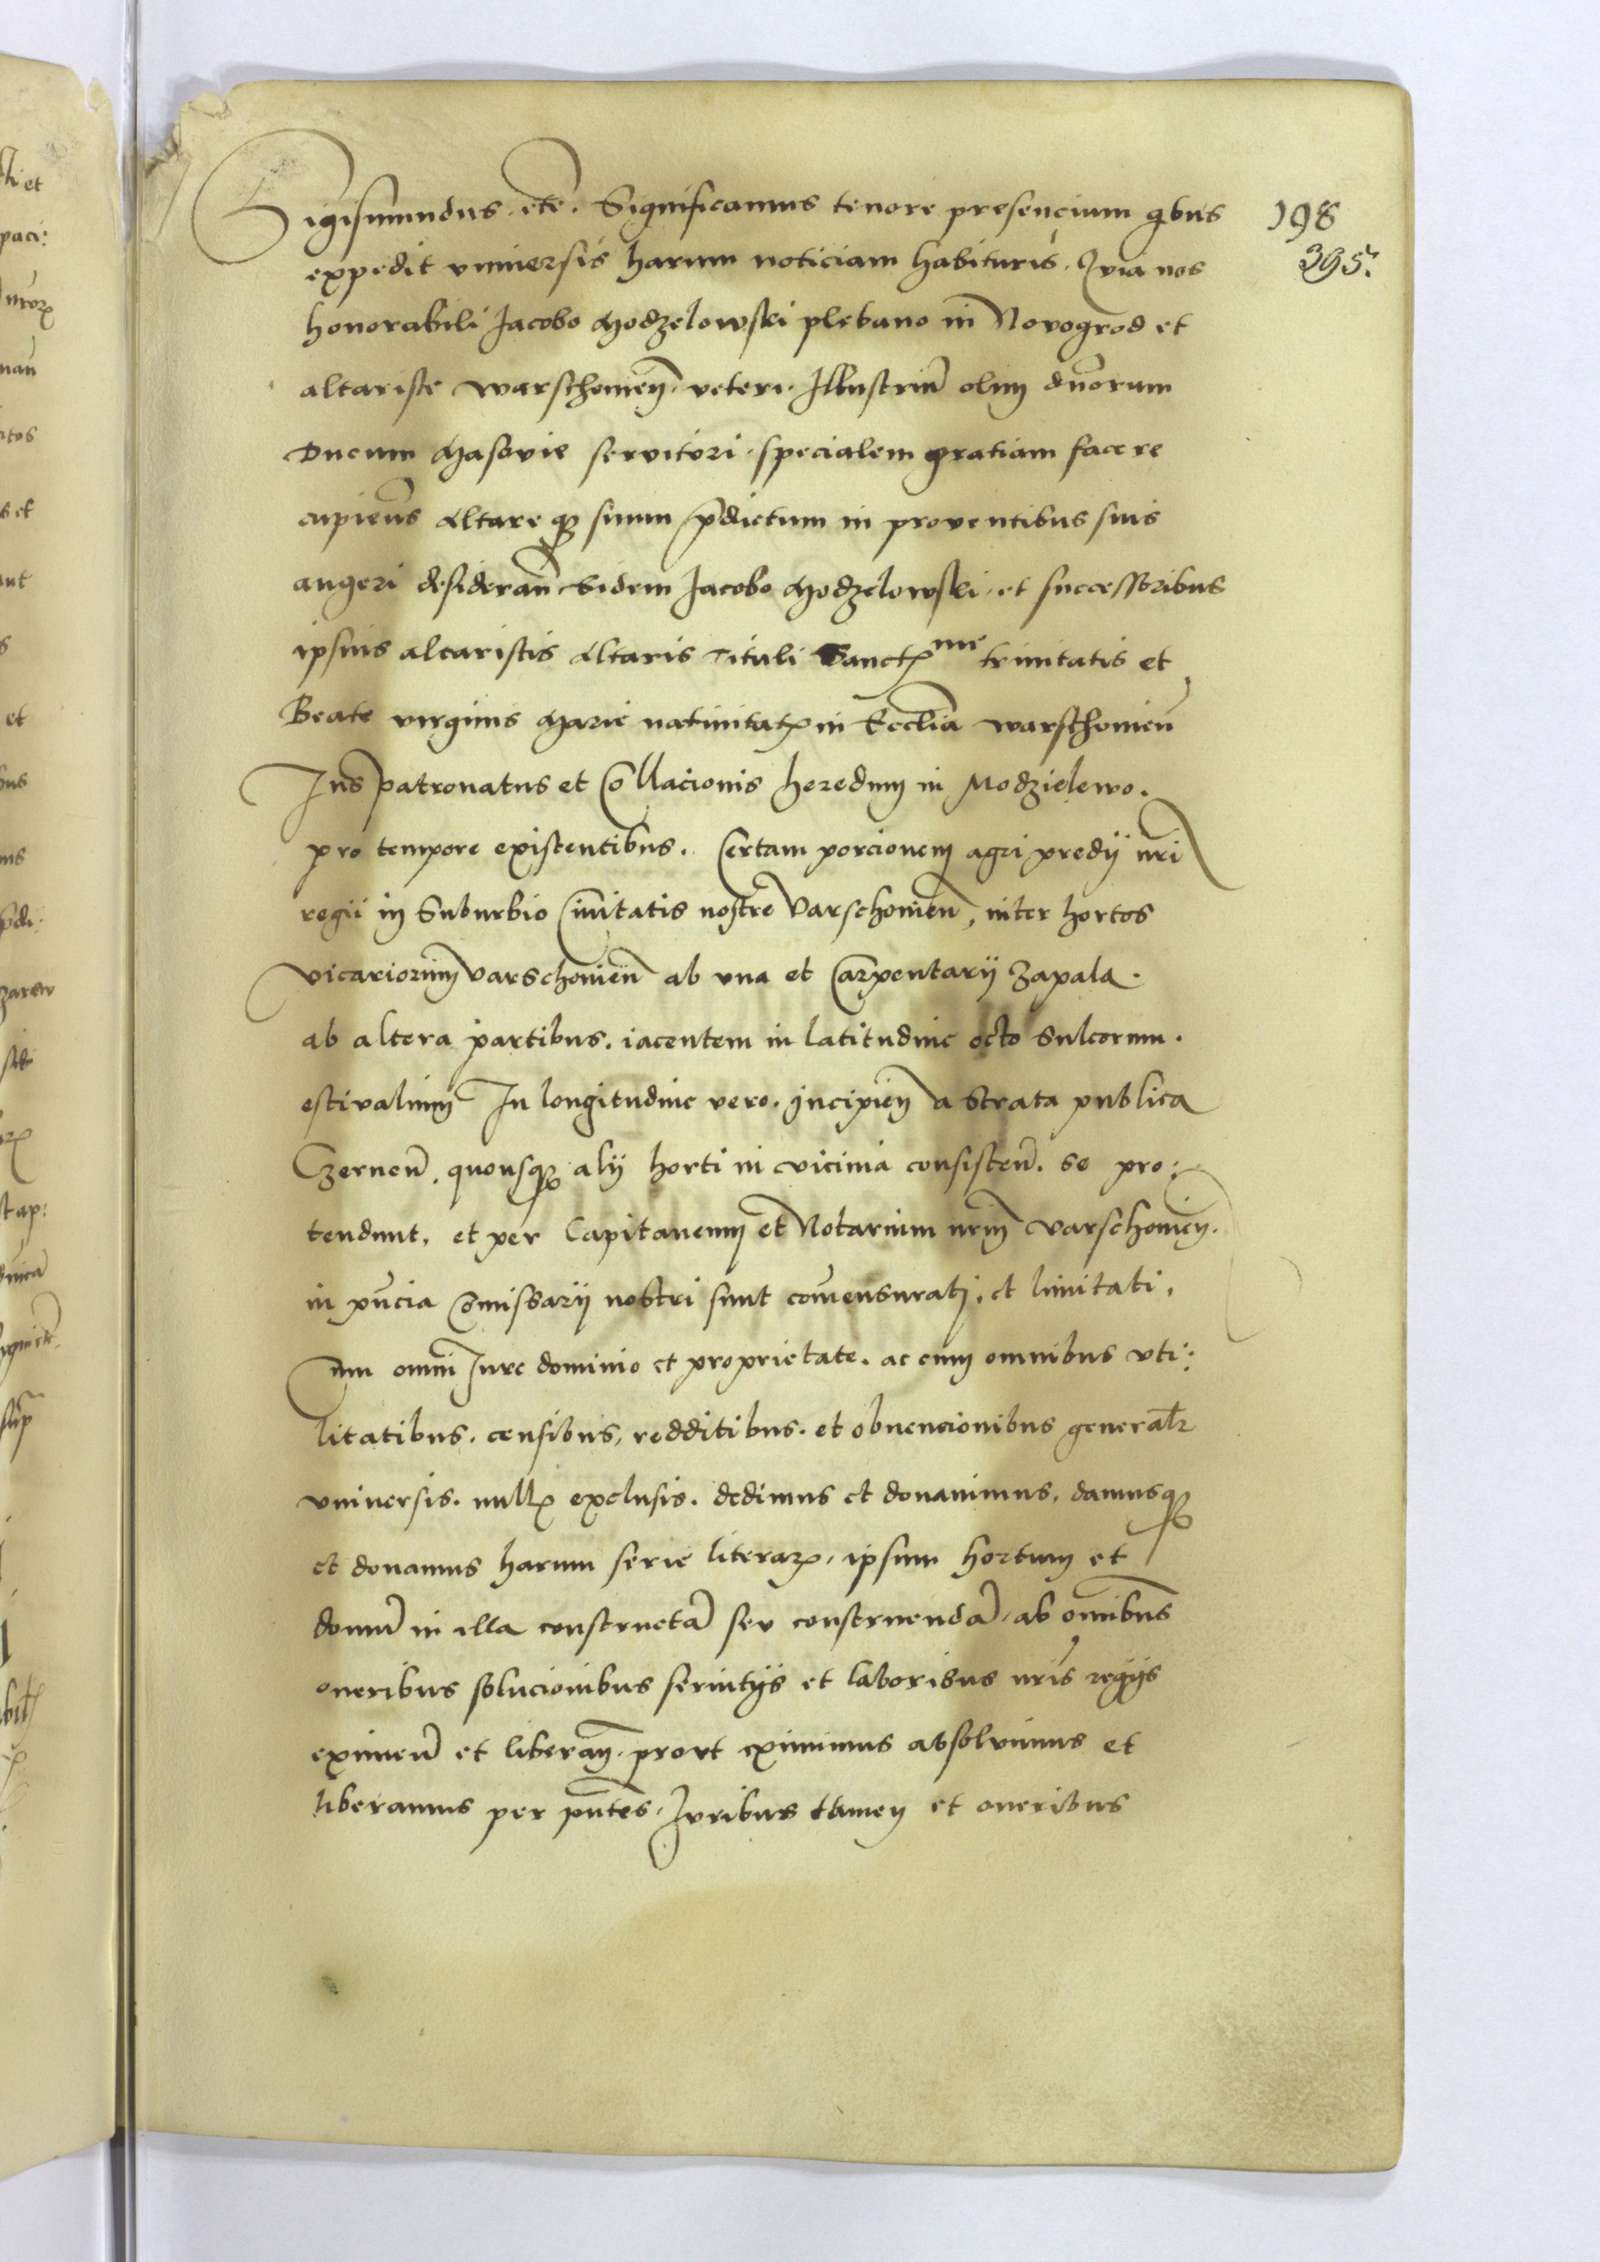 Sigismundus etc̃. Significamus tenore presencium qbus
198
expedit vniversis harum noticiam habituris, Quia nos
395.
honorabili Jacobo Modzelowski plebano in Novogrod et
altariste warschovieñ. veteri Illustriũ olim dñorum
Ducum Masovie servitori specialem gratiam facere
cupieñs Altareqꝫ suum p̃dictum in proventibus suis
augeri desiderañ Eidem Jacobo Modzelowski et successoribus
ipsius altaristis Altaris Tituli Sanctꝭme trinitatis et
Beate virginis Marie nativitatꝭ in Ecclĩa warschovieñ
Juris patronatus et Collacionis heredum in Modzielewo.
pro tempore existentibus. Certam porcionem agri predii nrĩ
regii in Suburbio Civitatis nostre Varschovieñ, inter hortos
vicariorum varschovieñ ab vna et Carpentarii Zapala.
ab altera partibus. iacentem in latitudine octo sulcorum.
estivalium In longitudine vero. Incipieñ a Strata publica
Czerneñ. quousqꝫ alii horti in vicinia consisteñ. se pro:
tendunt, et per Capitaneum et Notarium nrũm varschovieñ.
in pñcia Comissarii nostri sunt comensurati. et limitati,
Cum omni Jure dominio et proprietate. ac cum omnibus vti:
litatibus. censibus, redditibus. et obvencionibus generalr̃
vniversis. nullꝭ exclusis. dedimus et donavimus, damusqꝫ
et donamus harum serie literaꝝ, ipsum hortum et
domũ in illa constructã seu construendã, ab omnibus
oneribus solucionibus servitiis et laboribus nrĩs regiis
eximeñ et liberañ. prout eximimus absolvimus et
liberamus per pñtes. Juribus tamen et oneribus